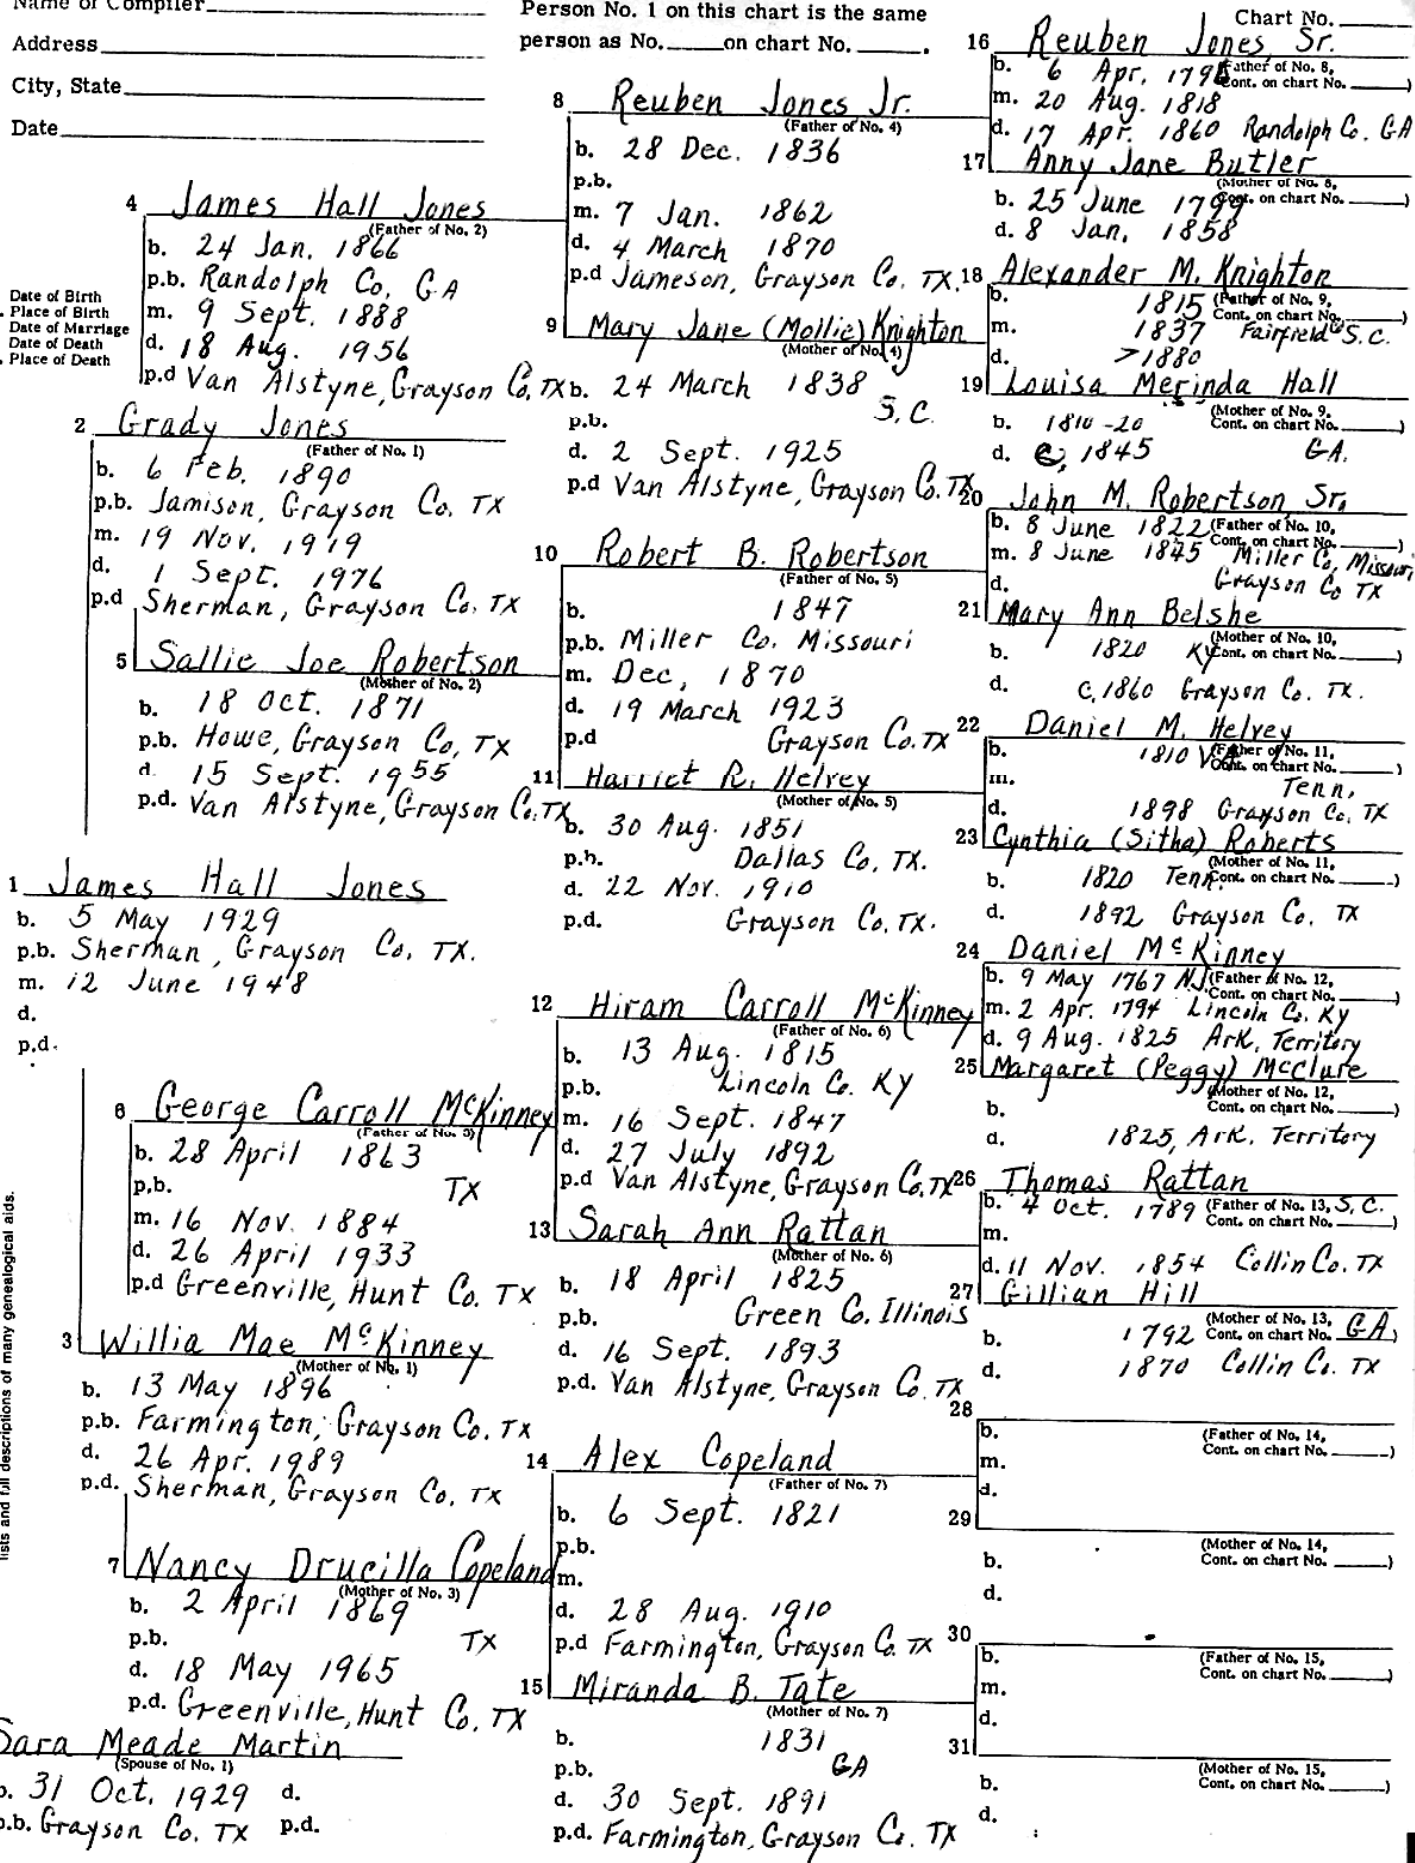 Name of Compiler
Address
City, State
Date
Person No. 1 on this chart is the same
person as No. on chart No. .
Chart No.
Date of Birth
Place of Birth
Date of Marriage
Date of Death
Place of Death
1 James Hall Jones
b. 5 May 1929
p.b. Sherman, Grayson Co, TX.
m. 12 June 1948
d.
p.d.
2 Grady Jones
(Father of No. 1)
b. 6 Feb. 1890
p.b. Jamison, Grayson Co, TX
m. 19 Nov. 1919
d. 1 Sept. 1976
p.d Sherman, Grayson Co, TX
3 Willia Mae McKinney
(Mother of No. 1)
b. 13 May 1896
p.b. Farmington, Grayson Co. TX
d. 26 Apr. 1989
p.d. Sherman, Grayson Co, TX
4 James Hall Jones
(Father of No. 2)
b. 24 Jan. 1866
p.b. Randolph Co, GA
m. 9 Sept. 1888
d. 18 Aug. 1956
p.d Van Alstyne, Grayson Co, TX
5 Sallie Joe Robertson
(Mother of No. 2)
b. 18 Oct. 1871
p.b. Howe, Grayson Co, TX
d. 15 Sept. 1955
p.d. Van Alstyne, Grayson Co. TX
6 George Carroll McKinney
(Father of No. 3)
b. 28 April 1863
p.b. TX
m. 16 Nov. 1884
d. 26 April 1933
p.d Greenville, Hunt Co. TX
7 Nancy Drucilla Copeland
(Mother of No. 3)
b. 2 April 1869
p.b. TX
d. 18 May 1965
p.d. Greenville, Hunt Co, TX
Sara Meade Martin
(Spouse of No. 1)
b. 31 Oct. 1929 d.
p.b. Grayson Co. TX p.d.
8 Reuben Jones Jr.
(Father of No. 4)
b. 28 Dec. 1836
p.b.
m. 7 Jan. 1862
d. 4 March 1870
p.d Jameson, Grayson Co, TX.
9 Mary Jane (Mollie) Knighton
(Mother of No. 4)
b. 24 March 1838
p.b. S.C.
d. 2 Sept. 1925
p.d Van Alstyne, Grayson Co. TX
10 Robert B. Robertson
(Father of No. 5)
b. 1847
p.b. Miller Co. Missouri
m. Dec, 1870
d. 19 March 1923
p.d Grayson Co. TX
11 Harriet R. Helvey
(Mother of No. 5)
b. 30 Aug. 1851
p.b. Dallas Co, TX.
d. 22 Nov. 1910
p.d. Grayson Co, TX.
12 Hiram Carroll McKinney
(Father of No. 6)
b. 13 Aug. 1815
p.b. Lincoln Co. KY
m. 16 Sept. 1847
d. 27 July 1892
p.d Van Alstyne, Grayson Co. TX
13 Sarah Ann Rattan
(Mother of No. 6)
b. 18 April 1825
p.b. Green Co. Illinois
d. 16 Sept. 1893
p.d. Van Alstyne, Grayson Co. TX
14 Alex Copeland
(Father of No. 7)
b. 6 Sept. 1821
p.b.
m.
d. 28 Aug. 1910
p.d Farmington, Grayson Co. TX
15 Miranda B. Tate
(Mother of No. 7)
b. 1831
p.b. GA
d. 30 Sept. 1891
p.d. Farmington, Grayson Co. TX
16 Reuben Jones, Sr.
(Father of No. 8,
Cont. on chart No. )
b. 6 Apr.
m. 20 Aug. 1818
d. 17 Apr. 1860 Randolph Co. GA
17 Anny Jane Butler
(Mother of No. 8,
Cont. on chart No. )
b. 25 June 1799
d. 8 Jan, 1858
18 Alexander M. Knighton
(Father of No. 9,
Cont. on chart No. )
b. 1815
m. 1837 Fairfield S.C.
d. >1880
19 Louisa Merinda Hall
(Mother of No. 9.
Cont. on chart No. )
b. 1810-20
d. c, 1845 GA.
20 John M. Robertson, Sr.
(Father of No. 10,
Cont. on chart No. )
b. 8 June 1822
m. 8 June 1845 Miller Co, Missouri
d. Grayson Co TX
21 Mary Ann Belshe
(Mother of No. 10,
Cont. on chart No. )
b. 1820 KY
d. c.1860 Grayson Co. TX.
22 Daniel M. Helvey
(Father of No. 11,
Cont. on chart No. )
b. 1810
m. Tenn.
d. 1898 Grayson Co, TX
23 Cynthia (Sitha) Roberts
(Mother of No. 11,
Cont. on chart No. )
b. 1820 Tenn.
d. 1892 Grayson Co, TX
24 Daniel McKinney
(Father of No. 12,
Cont. on chart No. )
b. 9 May 1767 NJ
m. 2 Apr. 1794 Lincoln Co. KY
d. 9 Aug. 1825 Ark. Territory
25 Margaret (Peggy) McClure
(Mother of No. 12,
Cont. on chart No. )
b.
d. 1825, Ark. Territory
26 Thomas Rattan
(Father of No. 13,
Cont. on chart No. )
b. 4 Oct. 1789 S.C.
m.
d. 11 Nov. 1854 Collin Co. TX
27 Gillian Hill
(Mother of No. 13,
Cont. on chart No. )
b. 1792 GA
d. 1870 Collin Co. TX
28
b. (Father of No. 14,
Cont. on chart No. )
m.
d.
29
(Mother of No. 14,
b. Cont. on chart No. )
d.
30
b. (Father of No. 15,
Cont. on chart No. )
m.
d.
31
(Mother of No. 15,
b. Cont. on chart No. )
d.
lists and full descriptions of many genealogical aids.